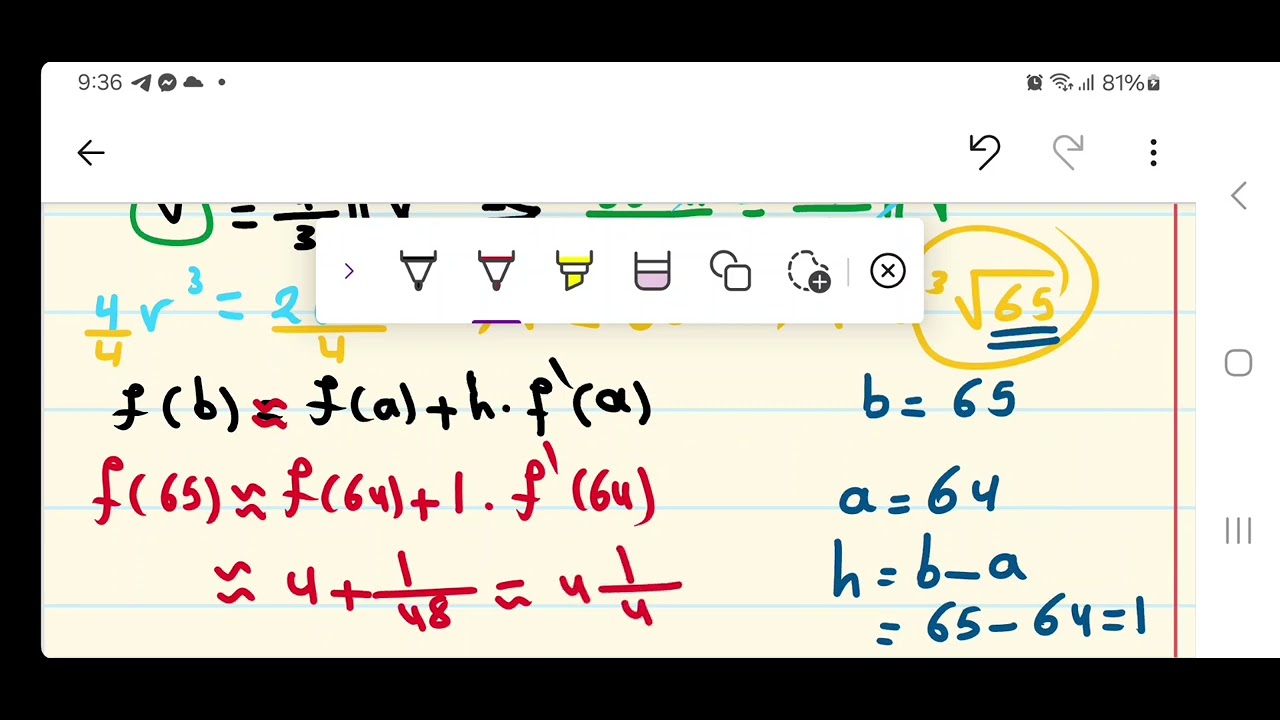 9:36 81%
V = /3 π r ⇒ =
4/4 r³ = 2 /4 ³√65
f(b) ≈ f(a)+h. f'(a) b = 65
f(65) ≈ f(64)+1. f'(64) a = 64
≈ 4 + 1/48 = 4 1/4 h = b - a
= 65 - 64 = 1